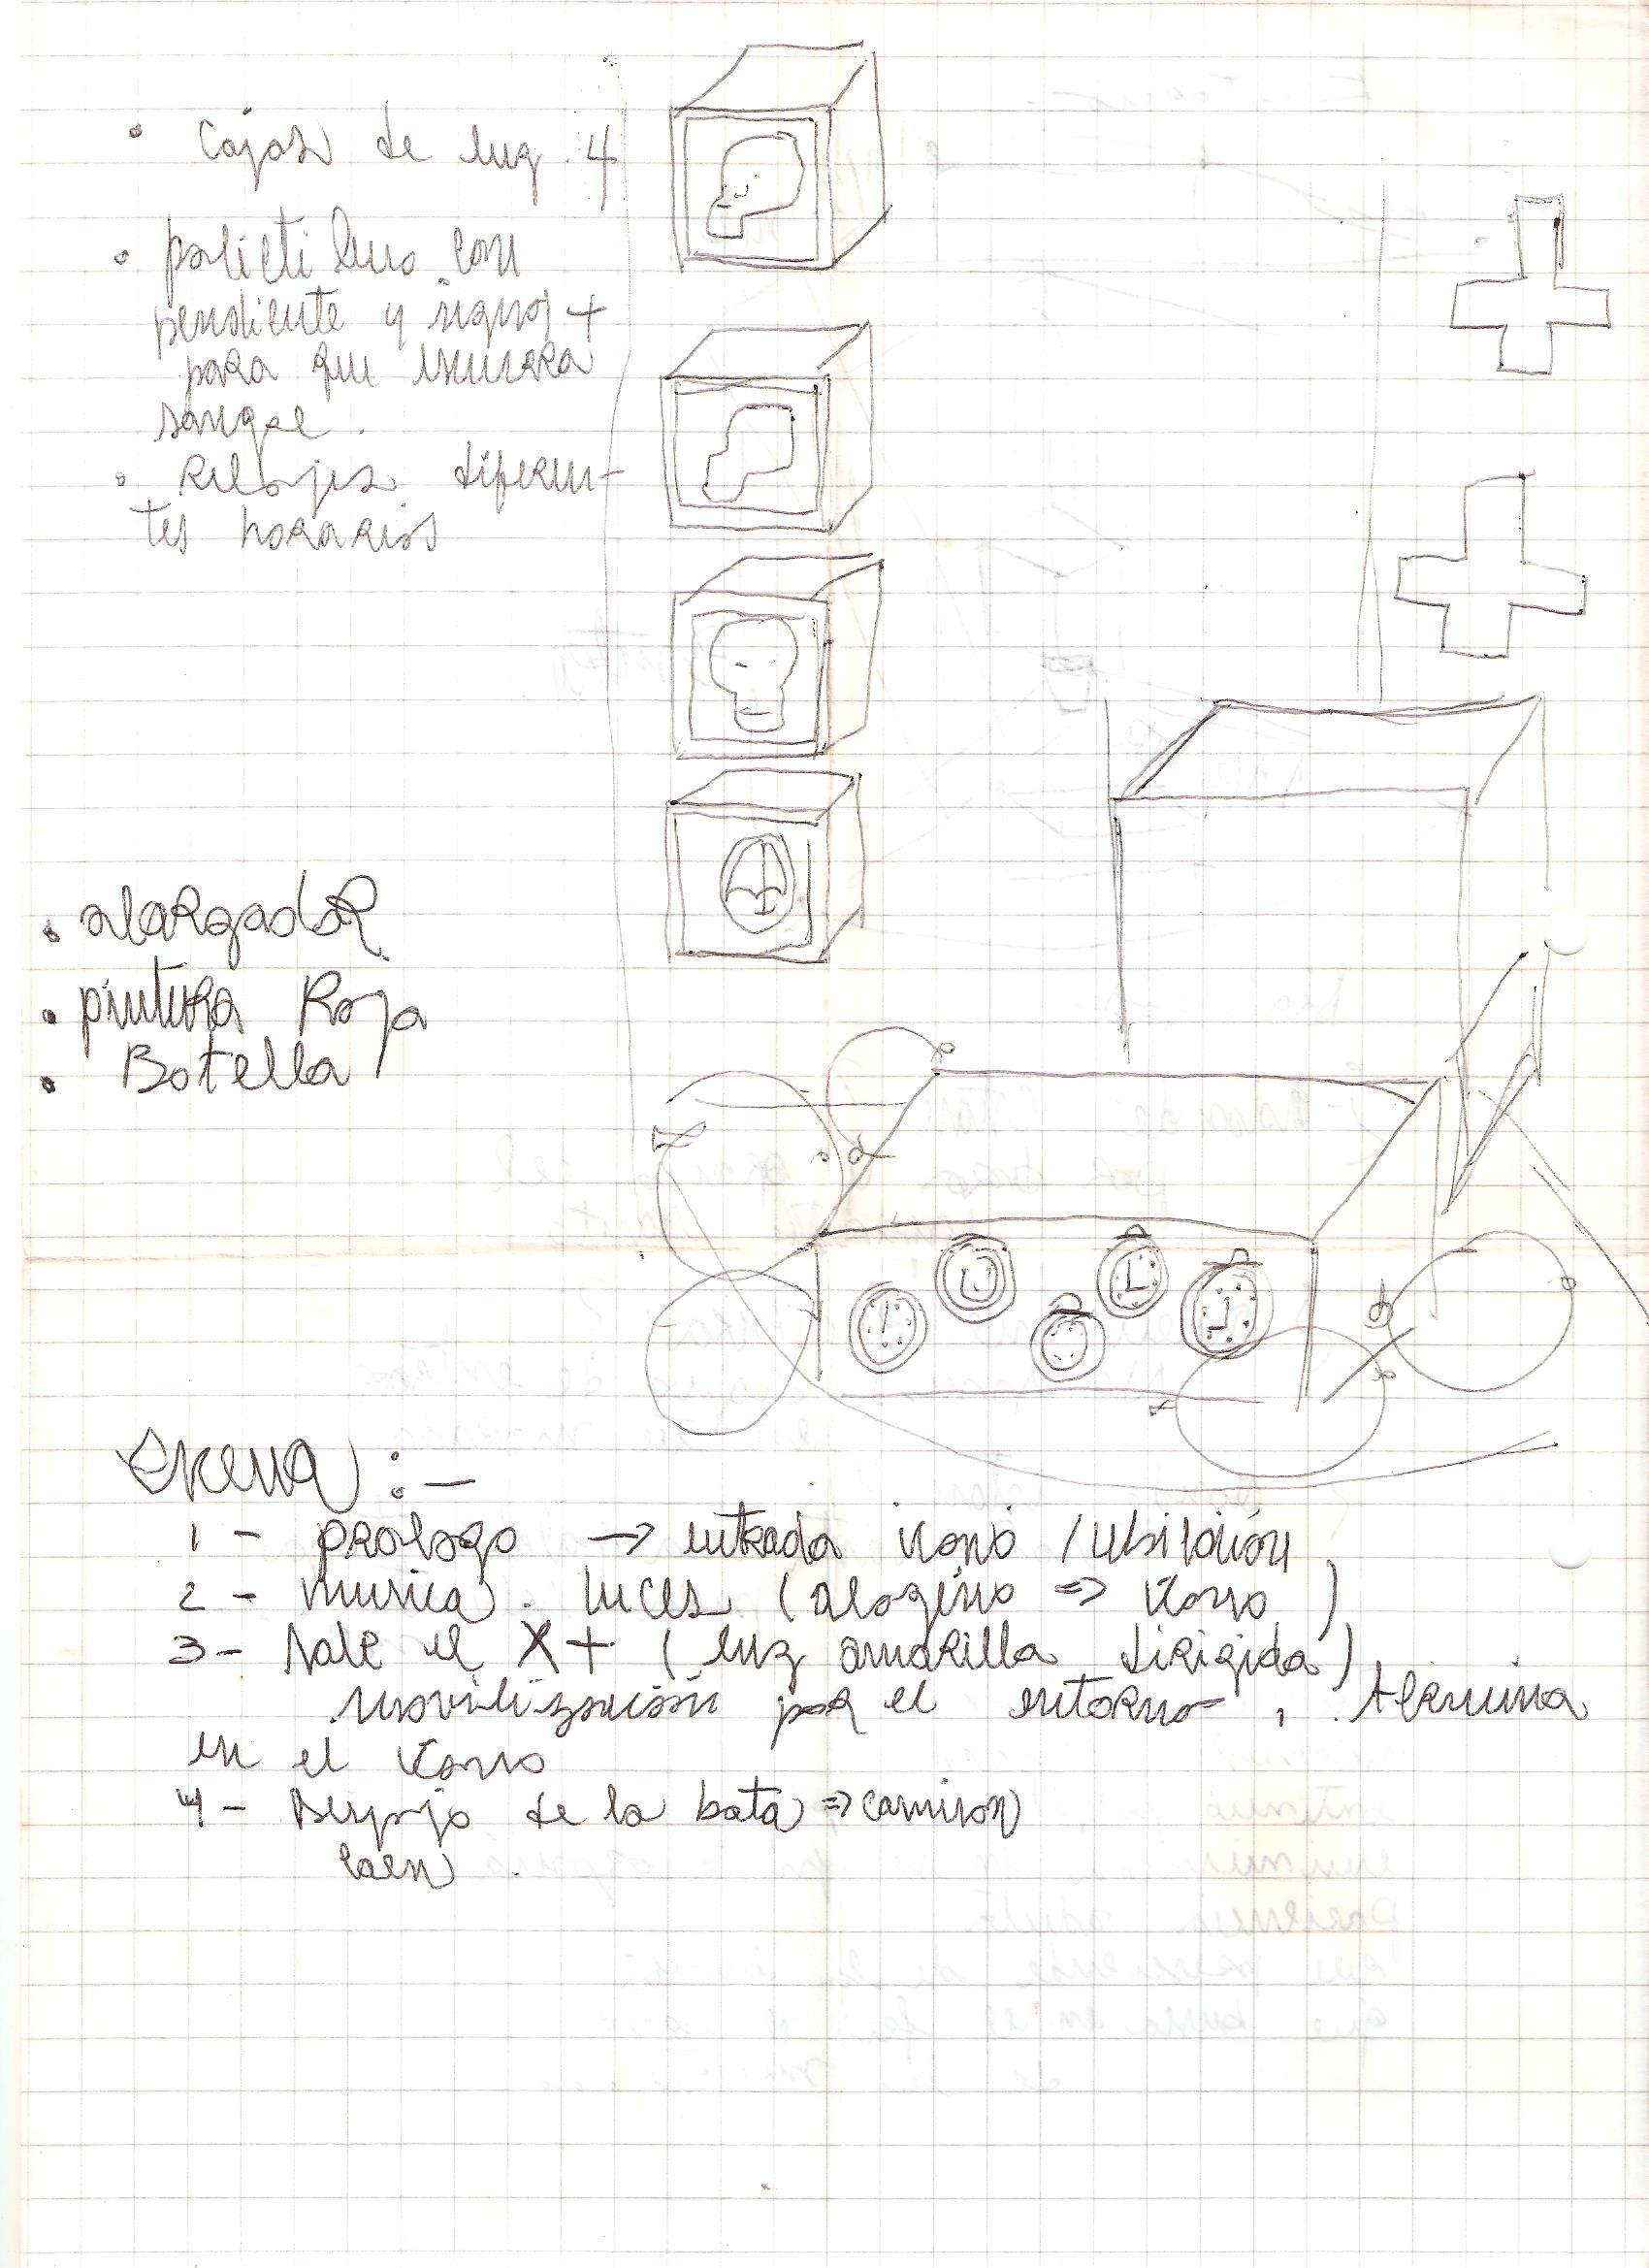 • Cajas de luz 4
• polietileno con
pendiente y signos +
para que escurra
sangre.
• Relojes diferen-
tes horarios
• alargador
• pintura Roja
• Botella
Escena :-
1 - prologo → entrada icono / ubicación
2 - musica. luces (alogeno => icono)
3 - Sale el X+ (luz amarilla dirigida)
movilización por el entorno, termina
en el icono
4 - Despojo de la bata => camison
caen.